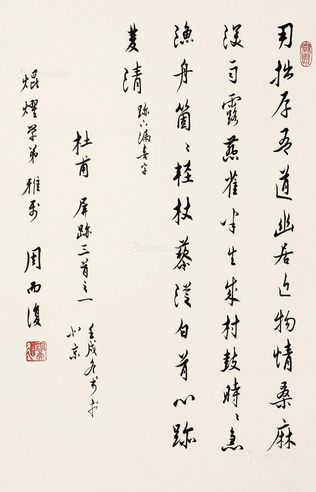 用拙存吾道幽居近物情桑麻
深雨露燕雀半生成村鼓時〻急
漁舟箇〻輕杖藜從白首心跡
雙清
跡下漏喜字
杜甫 屏跡三首之一
壬戌冬書于
北京
焜燿學弟雅正 周而復